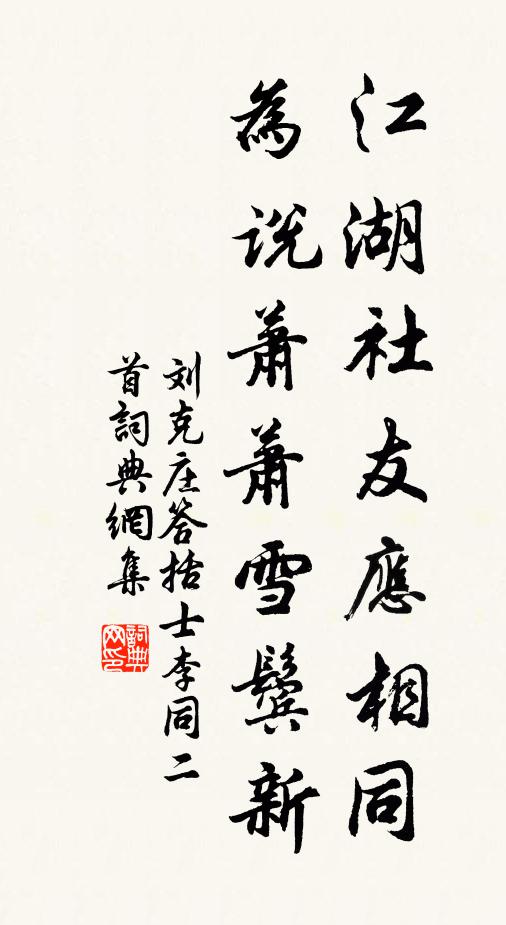 江湖社友應相同
為説蕭蕭雪鬢新
刘克庄答括士李同二
首詞典網集
詞典網印